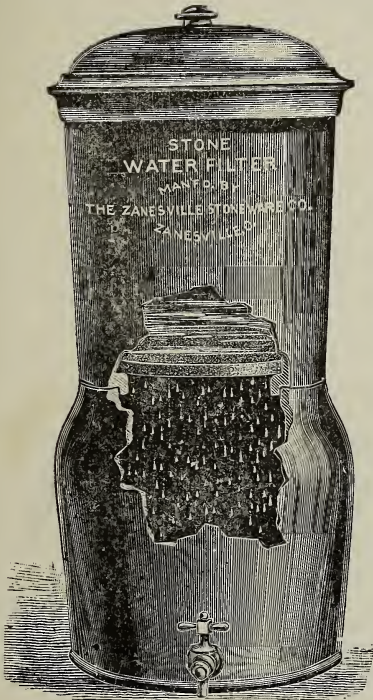 STONE
WATER FILTER
MANF'D. By
THE ZANESVILLE STONEWARE CO.
ZANESVILLE.O.